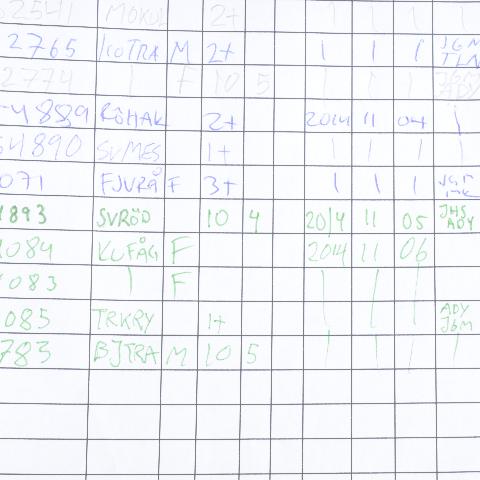 62541 MOKUL 2+ 1 1 1 1
2765 KOTRA M 2+ 1 1 1 JGM
2774 1 F 10 5 1 1 1 ADY
4889 RÖHAK 2+ 2014 11 04 1
54890 SVMES 1+ 1 1 1 1
071 FJVRÅ F 3+ 1 1 1
1893 SVRÖD 10 4 2014 11 05 JHS ADY
1084 KUFÅG F 2014 11 06
1083 1 F 1 1 1
085 TRKRY 1+ 1 1 1 ADY JGM
783 BJTRA M 10 5 1 1 1 1